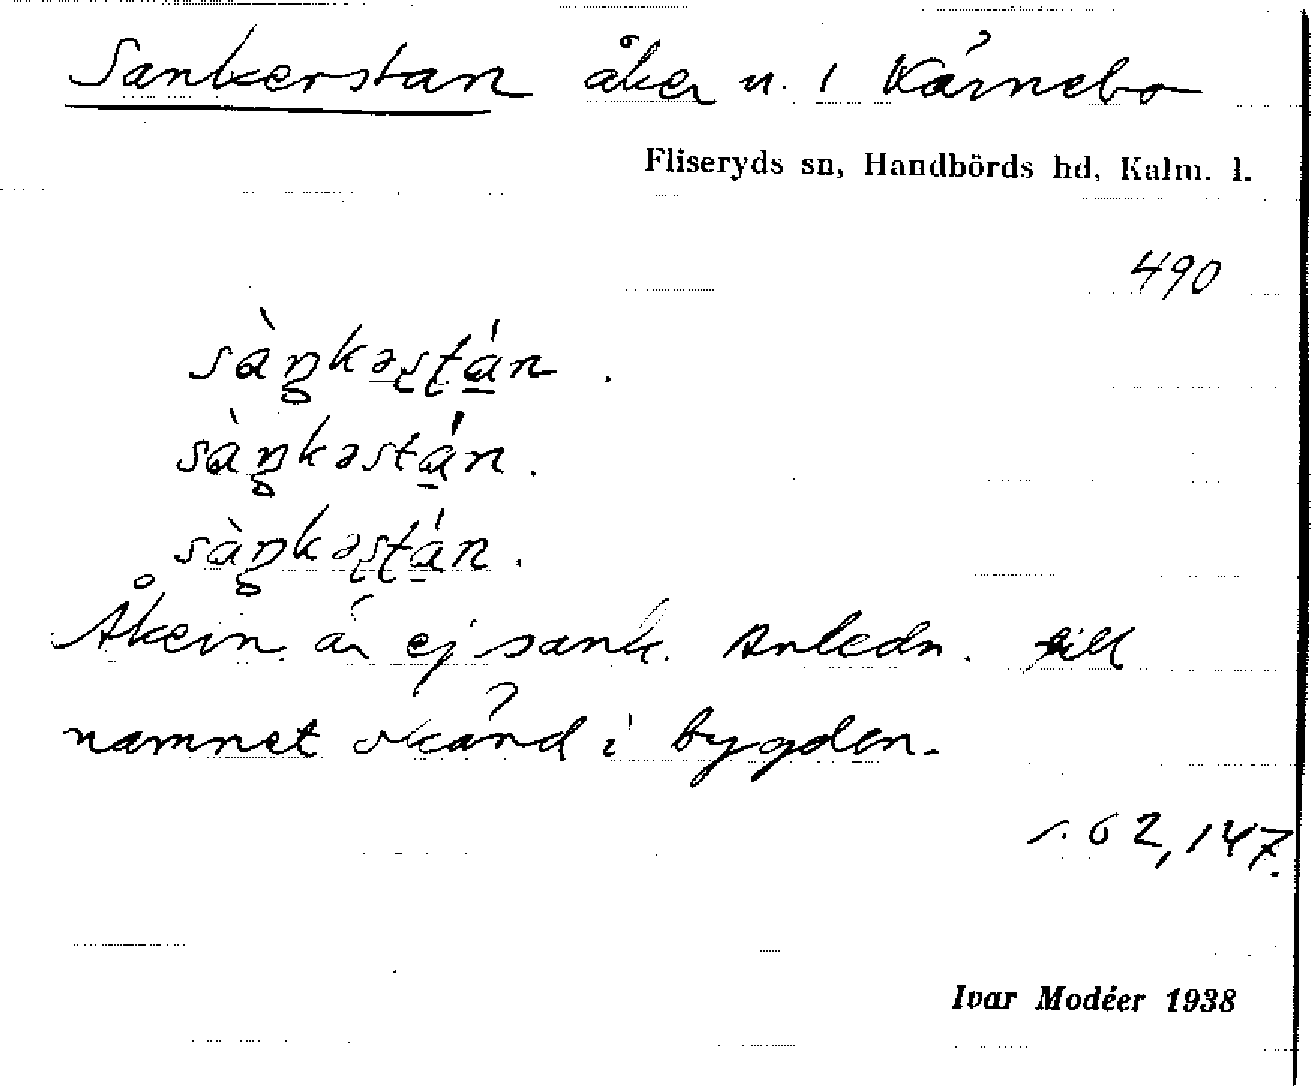 Sankerstan åker n. 1 Kärnebo
Fliseryds sn, Handbörds hd, Kalm. l.
490
sàŋkəʂʈán.
sàŋkəstán.
sàŋkəʂʈán.
Åkern är ej sank. Anledn. till
namnet okänd i bygden.
s. 62, 147.
Ivar Modéer 1938